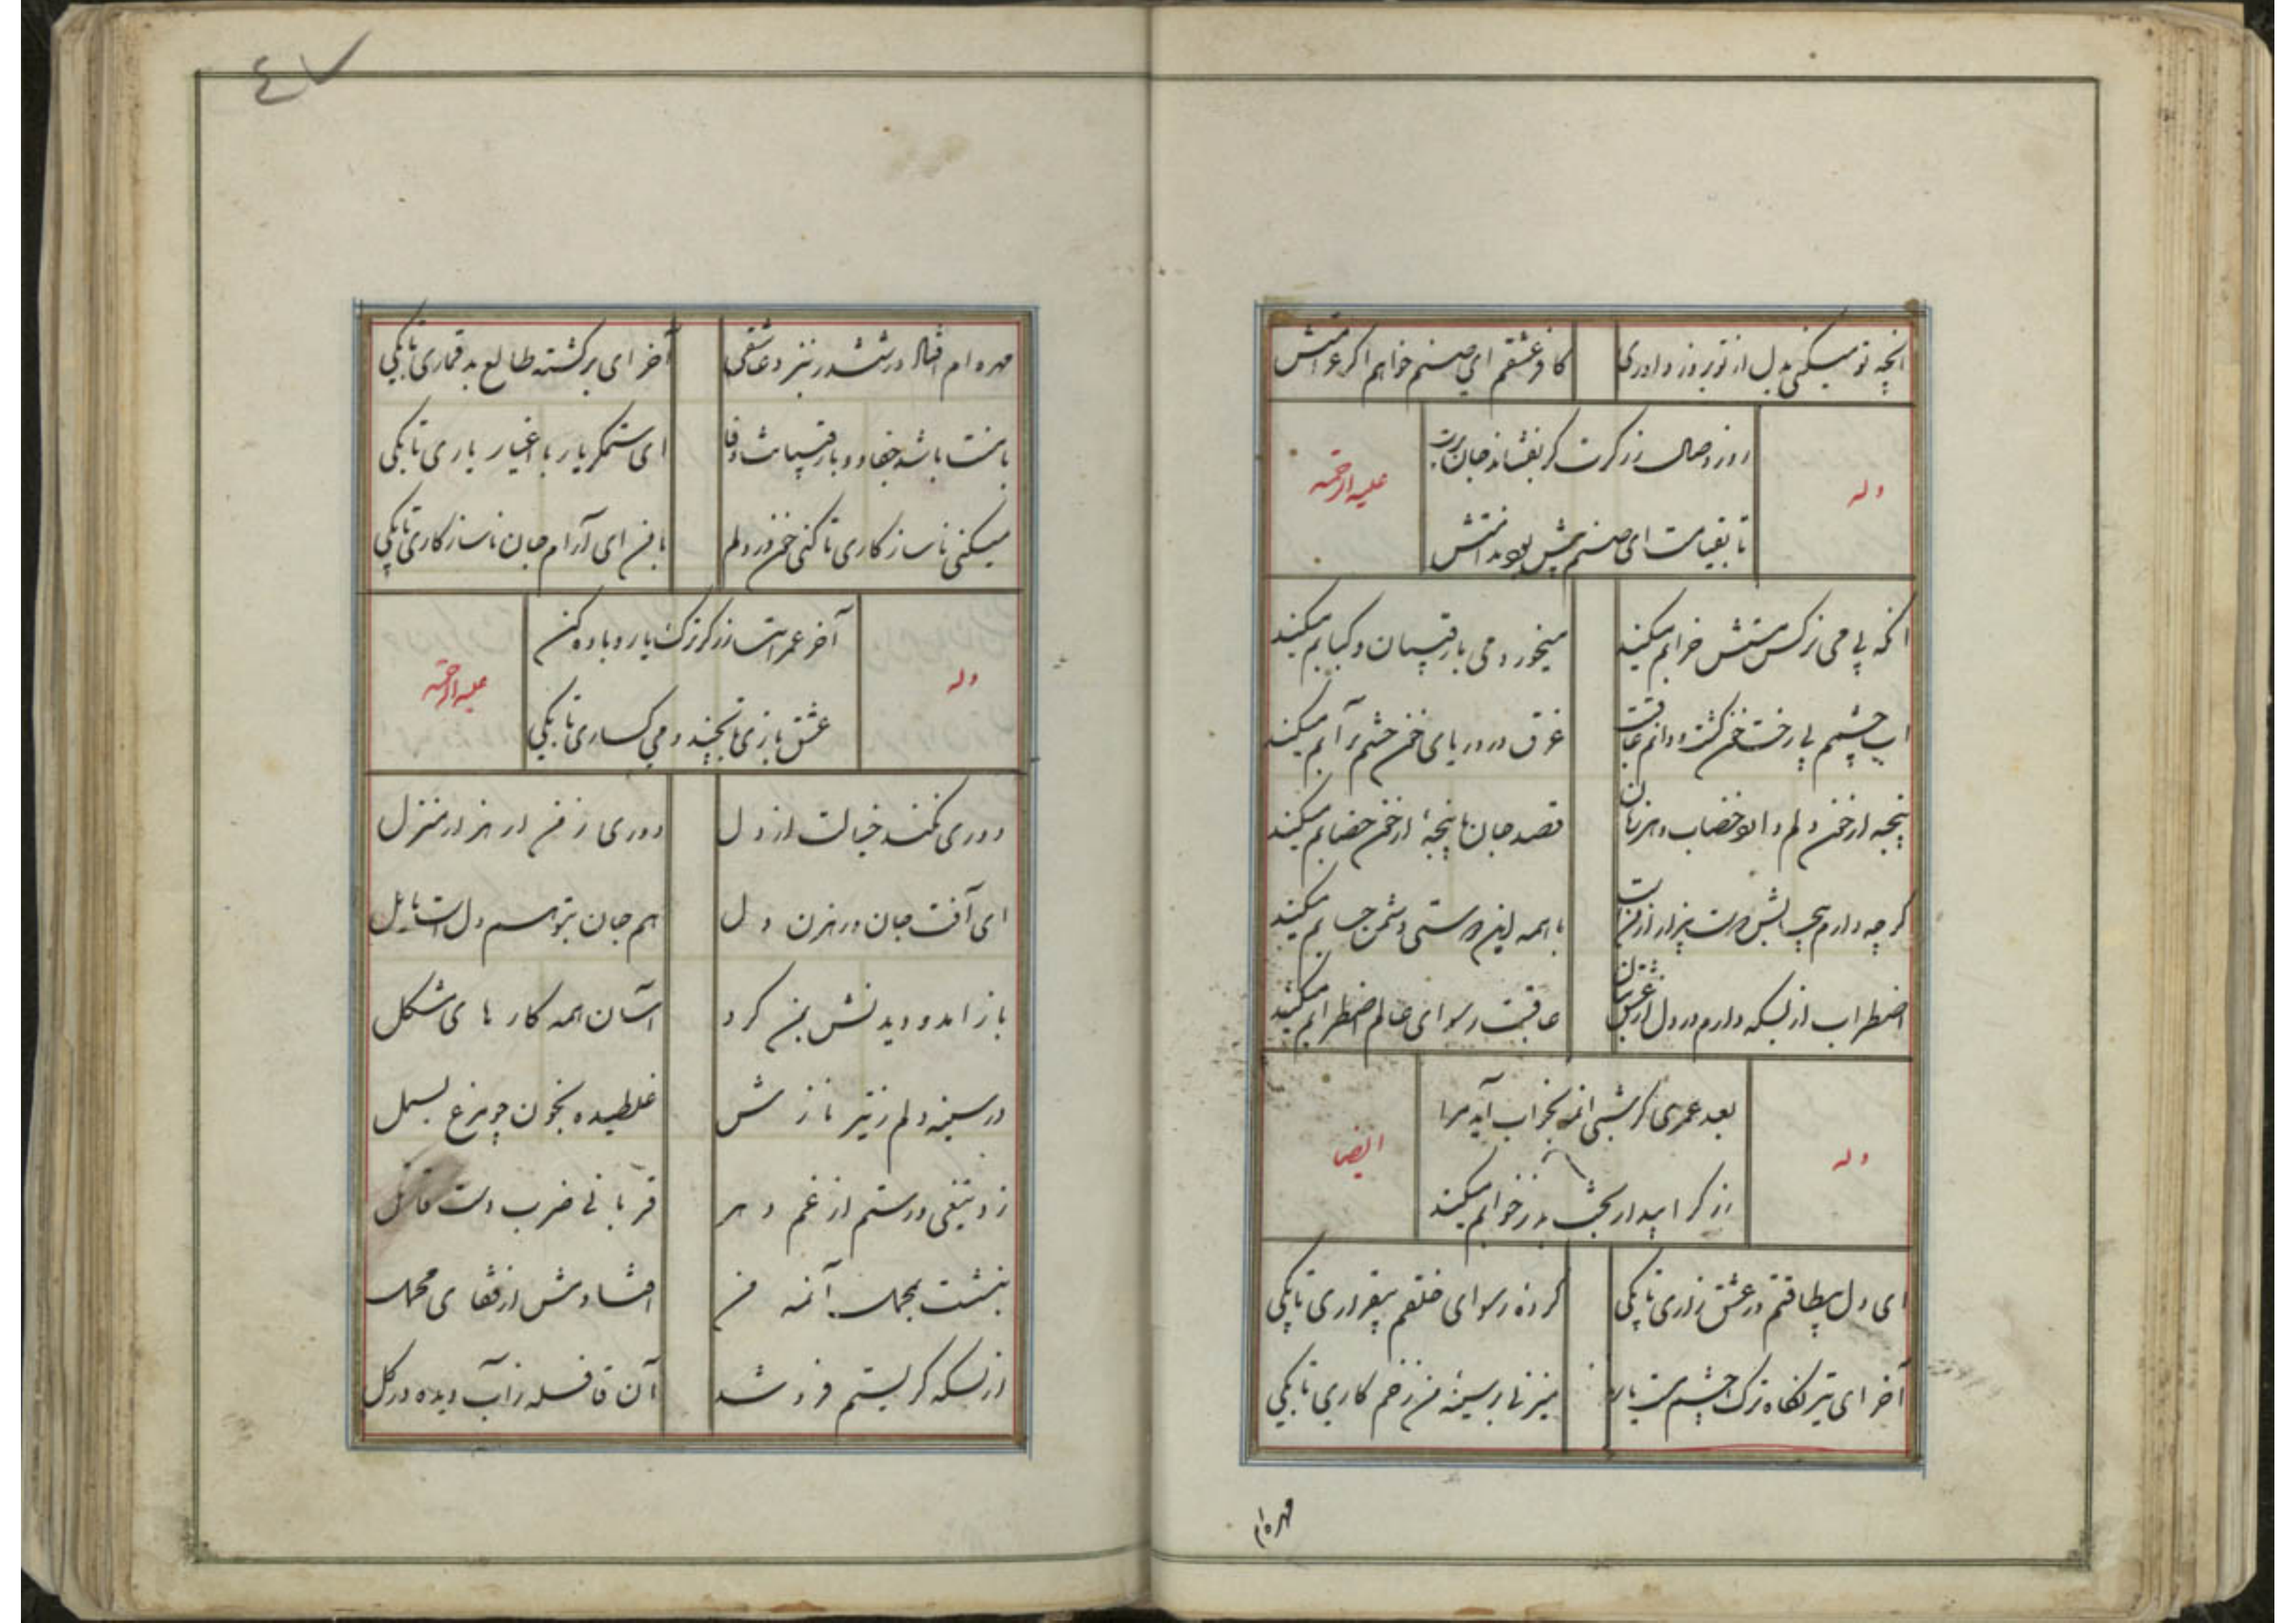 آنچه تو میکنی بدل از تو بروز داوری
کافر عشقم ای صنم خواهم اکر غرامتش
وله
روز وصال زرکرت کر نفشاند جان
علیه الرحمه
تا بقیامت ای صنم بس بود ندامتش
آنکه بی می نرکس مستش خرابم میکند
میخورد می با رقیبان و کبابم میکند
اب چشمم بی رخت خون کشت و دانم عاقبت
غرق در دریای خون چشم پر آبم میکند
پنجه از خون دلم دارد خضاب و هر زمان
قصد جان با پنجهٔ از خون خضابم میکند
کرچه دارم دوست بیزار از من است
با همه این دوستی دشمن حسابم میکند
اضطراب از بسکه دارم در دل از عشق بتان
عاقبت رسوای عالم اضطرابم میکند
وله
بعد عمری کر شبی آنمه بخواب آید مرا
ایضا
زرکر بیدار بخت بد ز خوابم میکند
ای دل بیطاقتم در عشق زاری تا بکی
کرده رسوای خلقم بیقراری تا بکی
آخر ای تیر نکاه ترک چشم مست یار
میزنی بر سینهٔ من زخم کاری تا بکی
مهره ام
٤٧
مهره ام افتاد در ششدر ز نرد عاشقی
آخر ای برکشته طالع بد قماری تا بکی
با منت باشد جفا و با رقیبانت وفا
ای ستمکر یار با اغیار یاری تا بکی
میکنی ناسازکاری تا کنی خون در دلم
با من ای آرام جان ناسازکاری تا بکی
وله
آخر عمر است زرکر ترک یار و باده کن
علیه الرحمه
عشق بازی تا بچند و می کساری تا بکی
دوری نکند خیالت از دل
دوری ز من ار هزار منزل
ای آفت جان و رهزن دل
هم جان بتو هم دل است مایل
باز آمد و دیدنش بمن کرد
آسان همه کار های مشکل
در سینه دلم ز تیر نازش
غلطیده بخون چو مرغ بسمل
زد تیغی و رستم از غم دهر
قربانی ضرب دست قاتل
بنشست بمحمل آنمه من
افتادمش از قفای محمل
از بسکه کریستم فرو شد
آن قافله ز آب دیده در کل